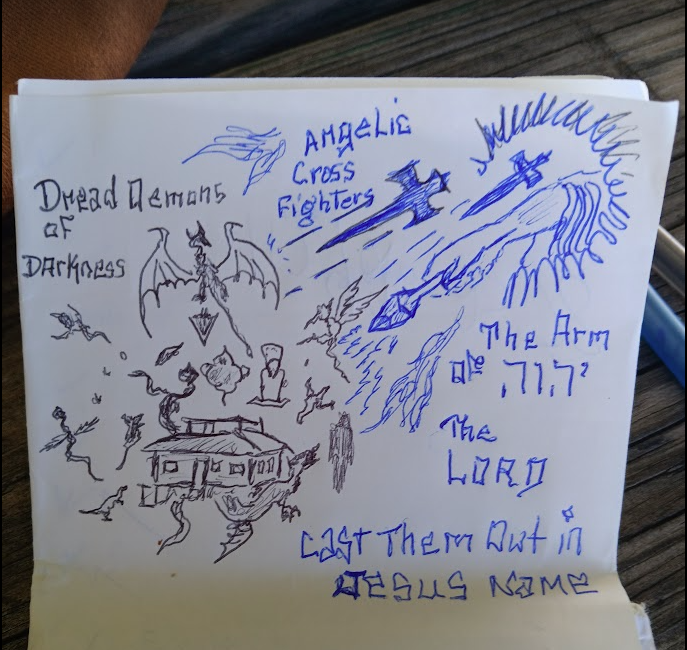 Angelic
Cross
Fighters
Dread Demons
of
Darkness
The Arm
of יהוה
The
LORD
Cast Them Out in
JESUS NAME